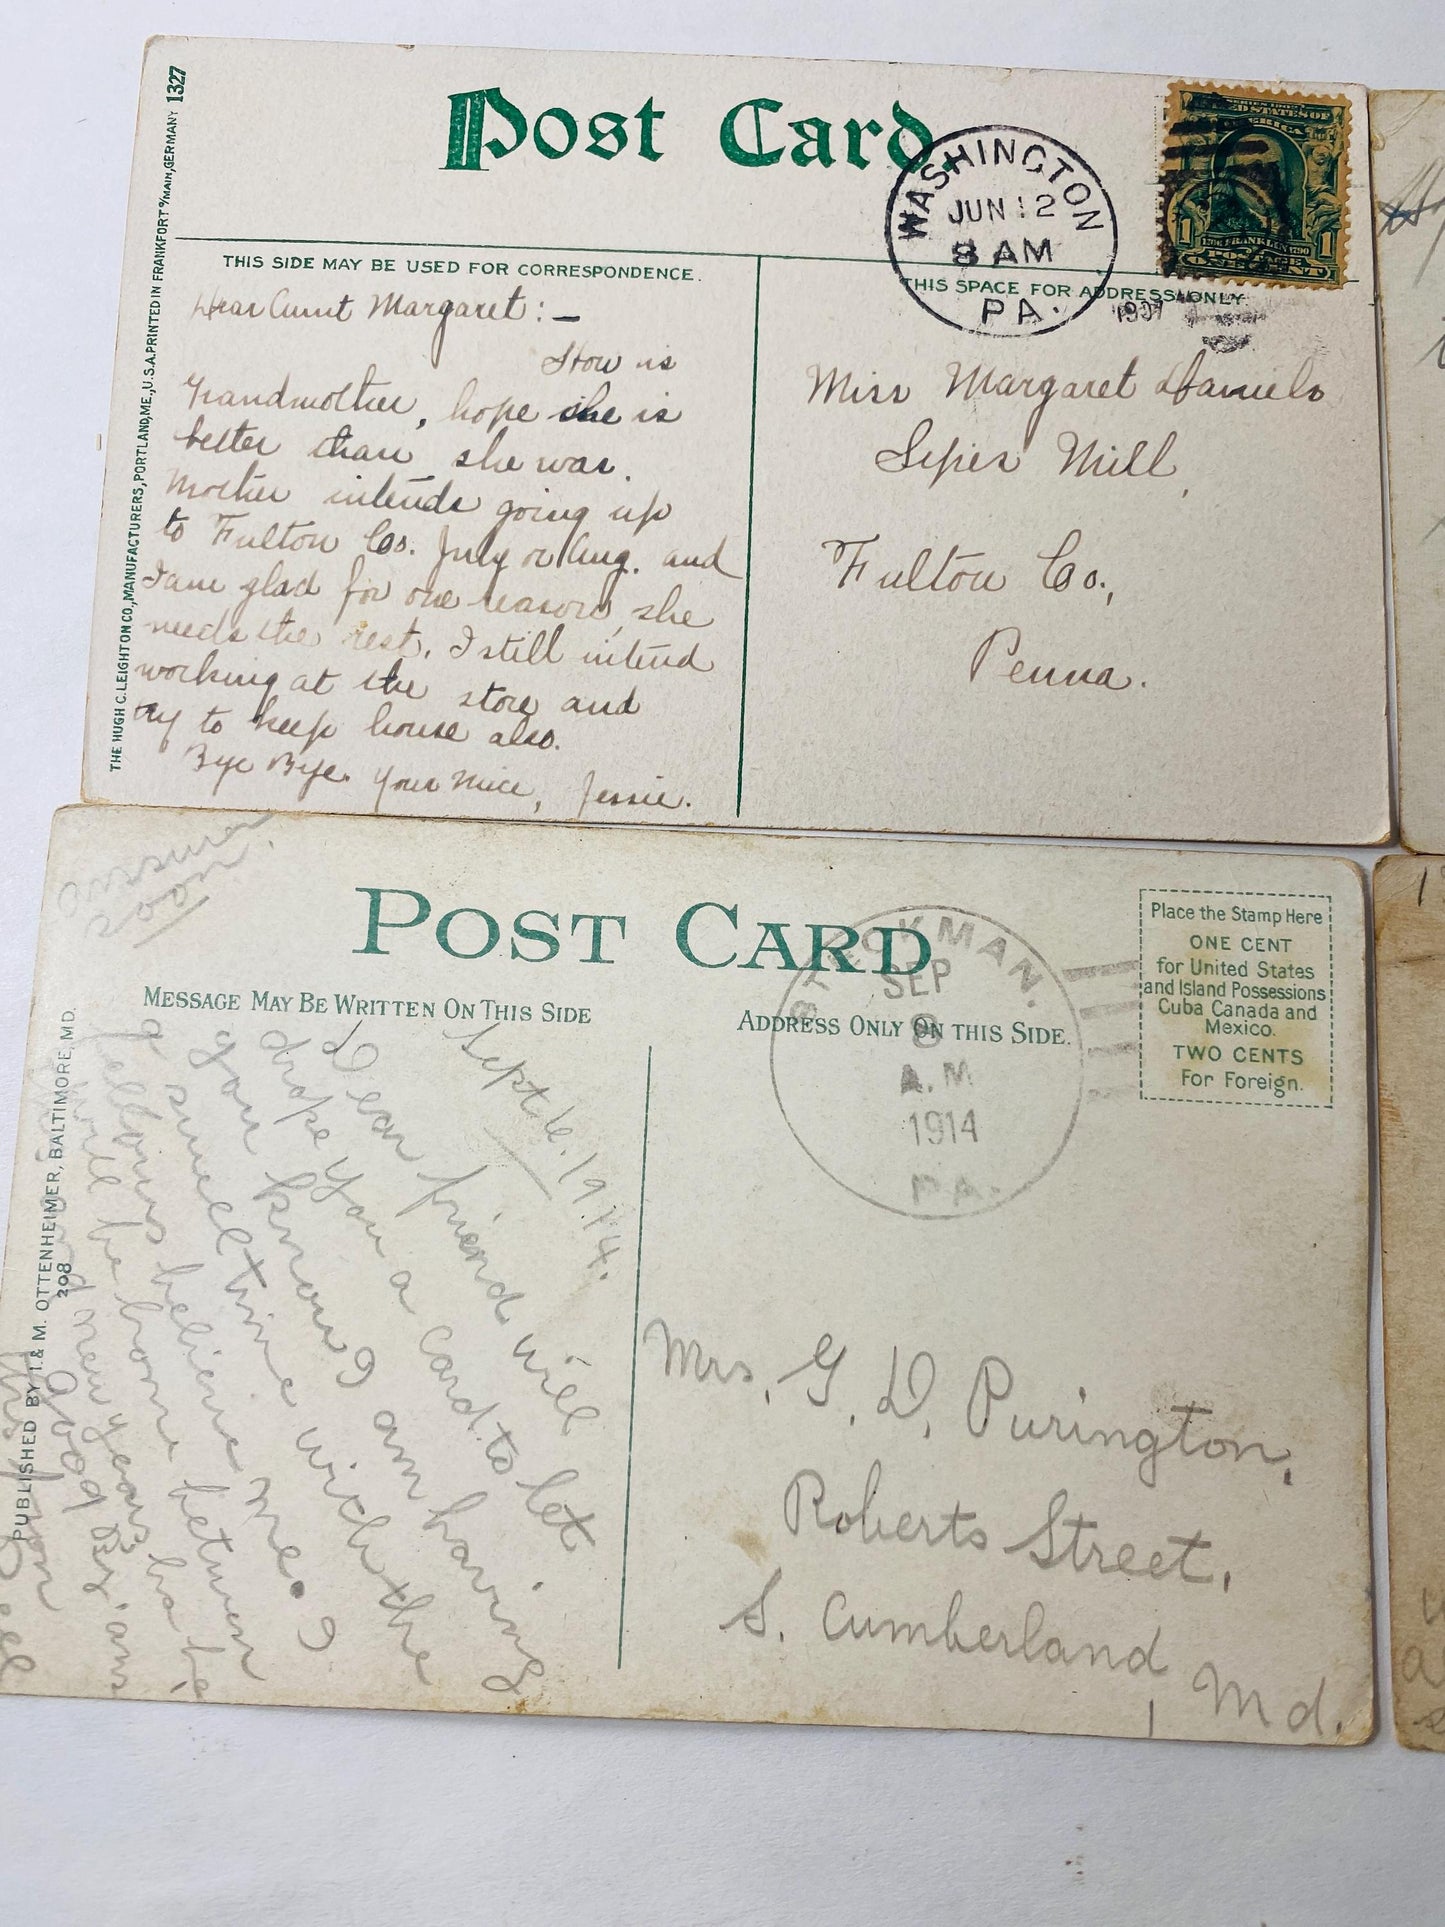 Post Card.
WASHINGTON
JUN 12
8 AM
PA.
1907
SERIES 1902
UNITED STATES OF
AMERICA
1 1
1706 FRANKLIN 1790
POSTAGE
ONE CENT
THE HUGH C. LEIGHTON CO., MANUFACTURERS, PORTLAND, ME., U.S.A. PRINTED IN FRANKFORT o/MAIN, GERMANY 1327
THIS SIDE MAY BE USED FOR CORRESPONDENCE.
THIS SPACE FOR ADDRESS ONLY.
Dear Aunt Margaret: —
How is
Grandmother, hope she is
better than she was.
Mother intends going up
to Fulton Co. July or Aug. and
I am glad for one reason, she
needs the rest. I still intend
working at the store and
try to keep house also.
Bye Bye. Your niece, Jessie.
Miss Margaret Daniels
Sipes Mill,
Fulton Co.,
Penna.
answer
soon
POST CARD
MESSAGE MAY BE WRITTEN ON THIS SIDE
ADDRESS ONLY ON THIS SIDE.
Place the Stamp Here
ONE CENT
for United States
and Island Possessions
Cuba Canada and
Mexico.
TWO CENTS
For Foreign.
SEP
8
A.M
1914
PA.
PUBLISHED BY I. & M. OTTENHEIMER, BALTIMORE, MD.
298
Sept 6. 1914.
Dear friend will
drope you a card to let
you know I am having
a smell time with the
fellows believe me. I
will be home between
and new years
good By
Mrs. G. D. Purington,
Roberts Street,
S. Cumberland
, Md.